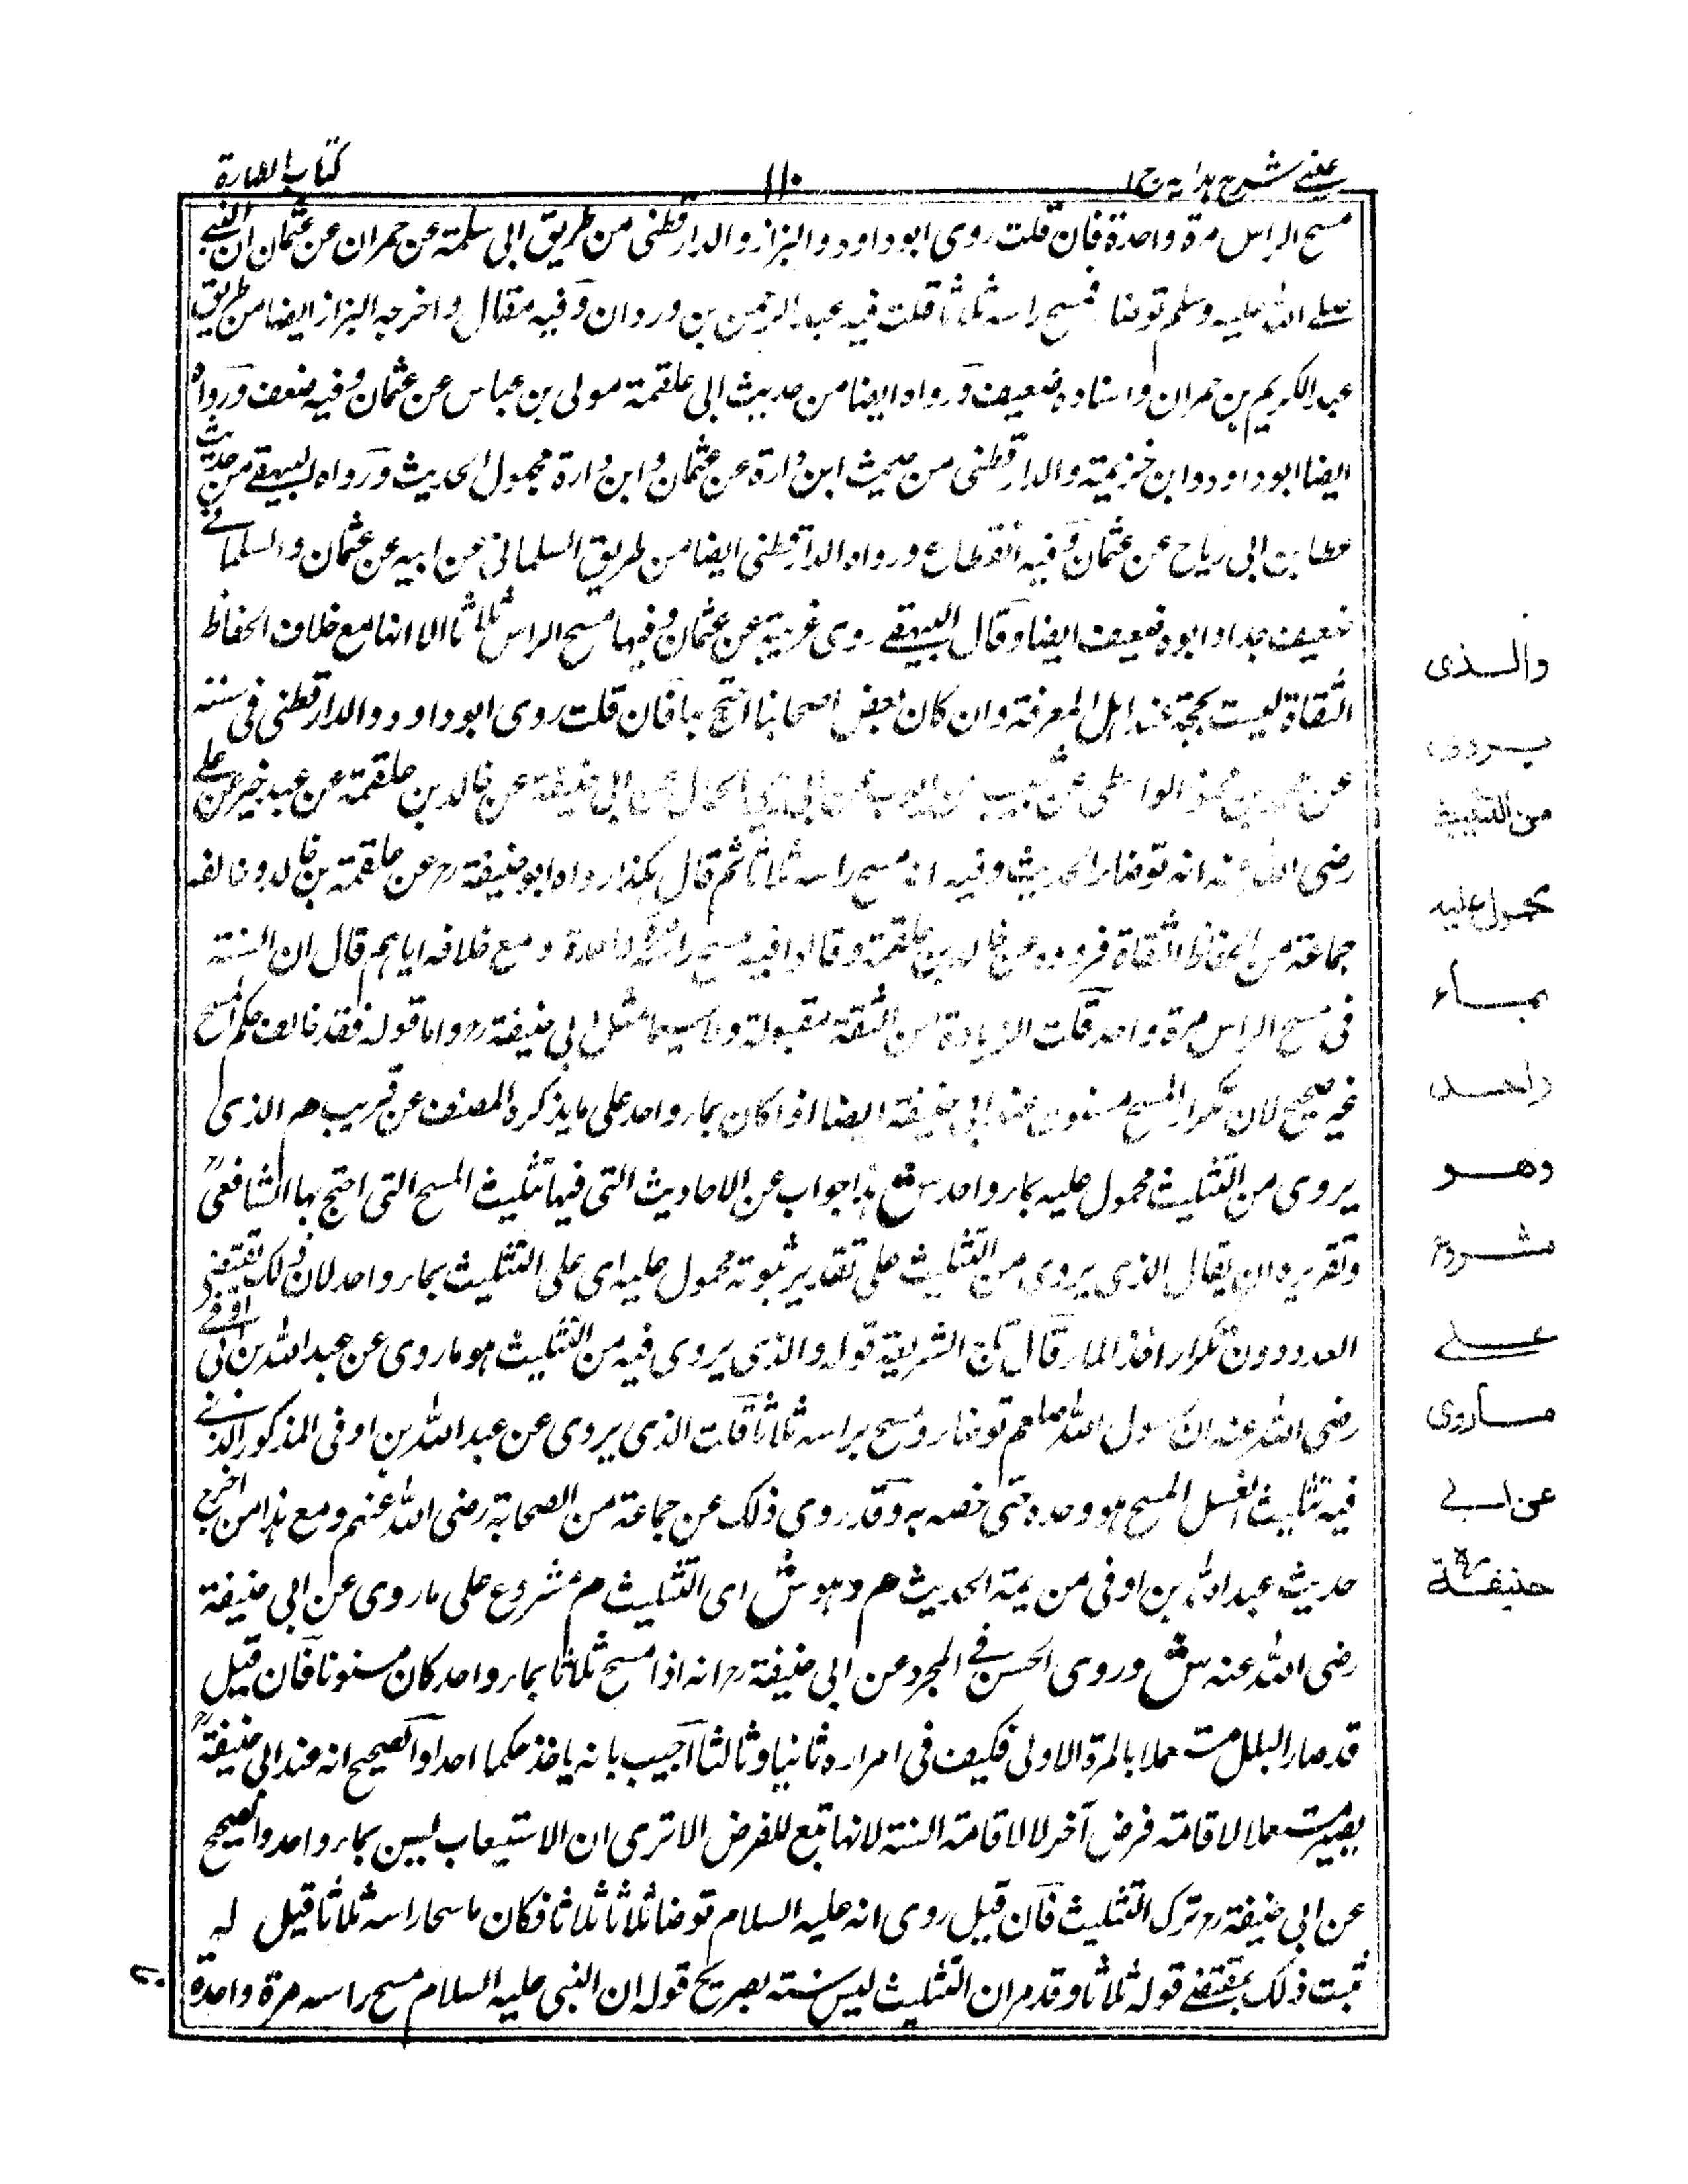 عيني شرح هدايه ج١
١١٠
كتاب الطهارة
مسح الراس مرة واحدة فان قلت روى ابو داود والبزاز والدارقطنى من طريق ابى سلمة عن حمران عن عثمان ان النبي
صلے الله عليه وسلم توضا فمسح راسه ثلاثا قلت فيه عبد الرحمن بن وردان وفيه مقال واخرجه البزاز ايضا من طريق
عبد الكريم بن حمران واسناده ضعيف ورواه ايضا من حديث ابى علقمة مولى بن عباس عن عثمان وفيه ضعف ورواه
ايضا ابو داود وابن خزيمة والدارقطنى من حديث ابن دارة عن عثمان وابن دارة مجهول الحديث ورواه البيهقے من حديث
عطا بن ابى رباح عن عثمان وفيه انقطاع ورواه الدارقطنى ايضا من طريق السلمانى عن ابيه عن عثمان والسلمانے
ضعيف جدا وابوه ضعيف ايضا وقال البيهقے روى غريبة عن عثمان وفيها مسح الراس ثلاثا الا انها مع خلاف الحفاظ
الثقاة ليست بحجة عند اهل المعرفة وان كان بعض اصحابنا احتج بها فان قلت روى ابو داود والدارقطنى فى سننه
عن محمد بن محمود الواسطى عن شعيب بن ايوب عن ابى يحيى الحمانى عن ابى حنيفة عن خالد بن علقمة عن عبد خير عن علے
رضى الله عنه انه توضا الحديث وفيه انه مسح راسه ثلاثا ثم قال هكذا رواه ابو حنيفة رح عن علقمة بن خالد وخالفه
جماعة من الحفاظ الثقاة فرووه عن خالد بن علقمة وقالوا فيه مسح راسه مرة واحدة ومع خلافه اياهم قال ان السنة
فى مسح الراس مرة واحد قلت الزيادة من الثقة مقبولة ولا سيما مثل ابى حنيفة رح واما قوله فقد خالف حكم المسح
غير صحيح لان تكرار المسح مسنون عند ابى حنيفة ايضا اذا كان بماء واحد على ما يذكره المصنف عن قريب هم الذى
يروى من التثليث محمول عليه بماء واحد ش هذا جواب عن الاحاديث التى فيها تثليث المسح التى احتج بها الشافعى رح
وتقريره ان يقال الذى يروى من التثليث على تقدير ثبوته محمول عليه اى على التثليث بماء واحد لان ذلك يقتضى
العدد دون تكرار اخذ الماء قال تاج الشريعة قوله والذى يروى فيه من التثليث هو ما روى عن عبد الله بن ابى اوفے
رضى الله عنه ان رسول الله صلعم توضا ومسح براسه ثلاثا قلت الذى يروى عن عبد الله بن اوفى المذكور الذى
فيه تثليث الغسل المسح هو وحده حتى خصه به وقد روى ذلك عن جماعة من الصحابة رضى الله عنهم ومع هذا من اخرج
حديث عبد الله بن اوفى من يمة الحديث هم وهو ش اى التثليث م مشروع على ما روى عن ابى حنيفة
رضى الله عنه ش وروى الحسن فے المجرد عن ابى حنيفة رح انه اذا مسح ثلاثا بماء واحد كان مسنونا فان قيل
قد صار البلل مستعملا بالمرة الاولى فكيف فى امراره ثانيا وثالثا اجيب بانه ياخذ حكما احدا والصحيح انه عند ابى حنيفة رح
يصير مستعملا لاقامة فرض آخر لا لاقامة السنة لانها تبع للفرض الا ترى ان الاستيعاب ليس بماء واحد والصحيح
عن ابى حنيفة رح ترك التثليث فان قيل روى انه عليه السلام توضا ثلاثا ثلاثا فكان ماسحا راسه ثلاثا قيل له
ثبت ذلك بمقتضے قوله ثلاثا وقد مر ان التثليث ليس سنة بصريح قوله ان النبى عليه السلام مسح راسه مرة واحدة
والذى
يروى
من التثليث
محمول عليه
بماء
واحد
وهو
مشروع
علے
ماروى
عن ابے
حنيفة رح